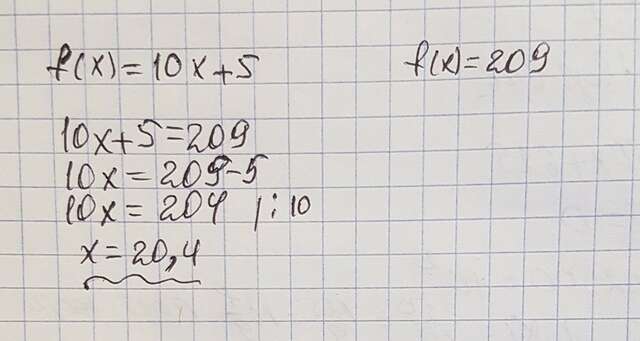 f(x)=10x+5
f(x)=209
10x+5=209
10x=209-5
10x=204 /:10
x=20,4